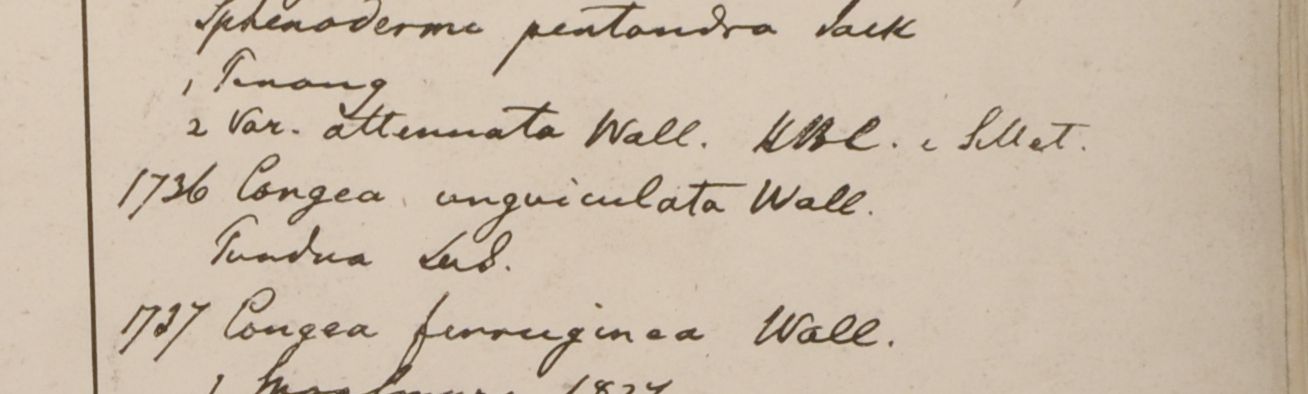 Sphenoderme pentandra Jack
1 Penang
2 Var. attenuata Wall. HBC. e Sillet.
1736 Congea unguiculata Wall.
Tundua
1737 Congea ferruginea Wall.
1 1827